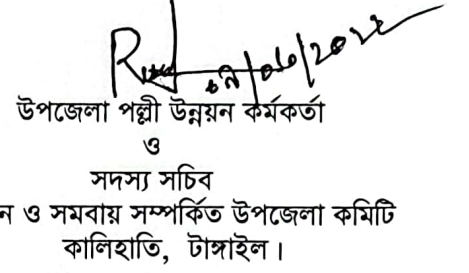 উপজেলা পল্লী উন্নয়ন কর্মকর্তা
ও
সদস্য সচিব
ন ও সমবায় সম্পর্কিত উপজেলা কমিটি
কালিহাতি, টাঙ্গাইল।